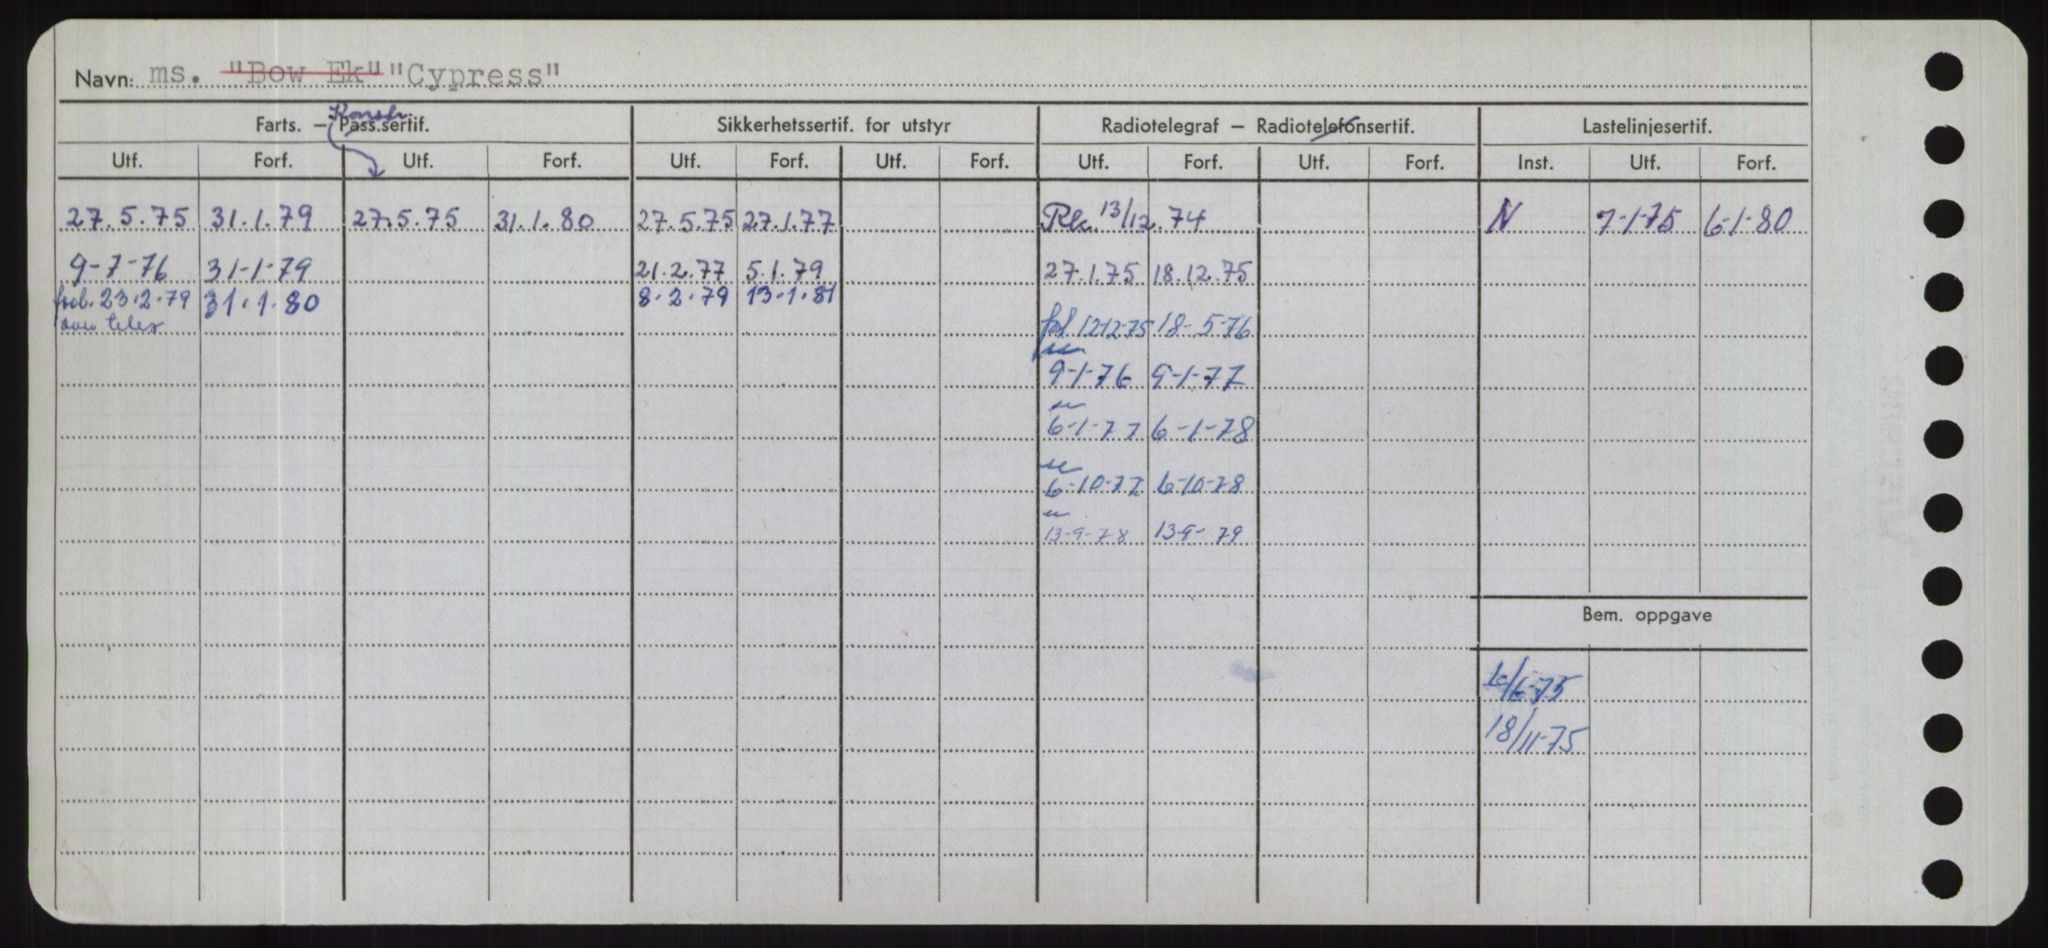 Navn: ms. "Bow Ek" "Cypress"
Konstr.
Farts. – Pass.sertif. Sikkerhetssertif. for utstyr Radiotelegraf – Radiotelefonsertif. Lastelinjesertif.
Utf. Forf. Utf. Forf. Utf. Forf. Utf. Forf. Utf. Forf. Utf. Forf. Inst. Utf. Forf.
27.5.75 31.1.79 27.5.75 31.1.80 27.5.75 27.1.77 13/12.74 N 7-1-75 6-1-80
9-7-76 31-1-79 21.2.77 5.1.79 27.1.75 18.12.75
23.2.79 31.1.80 8.2.79 13.1.81
telex 12-12-75 18-5-76
9-1-76 9-1-77
6-1-77 6-1-78
6-10-77 6-10-78
13-9-78 13-9-79
Bem. oppgave
/6-75
18/11-75